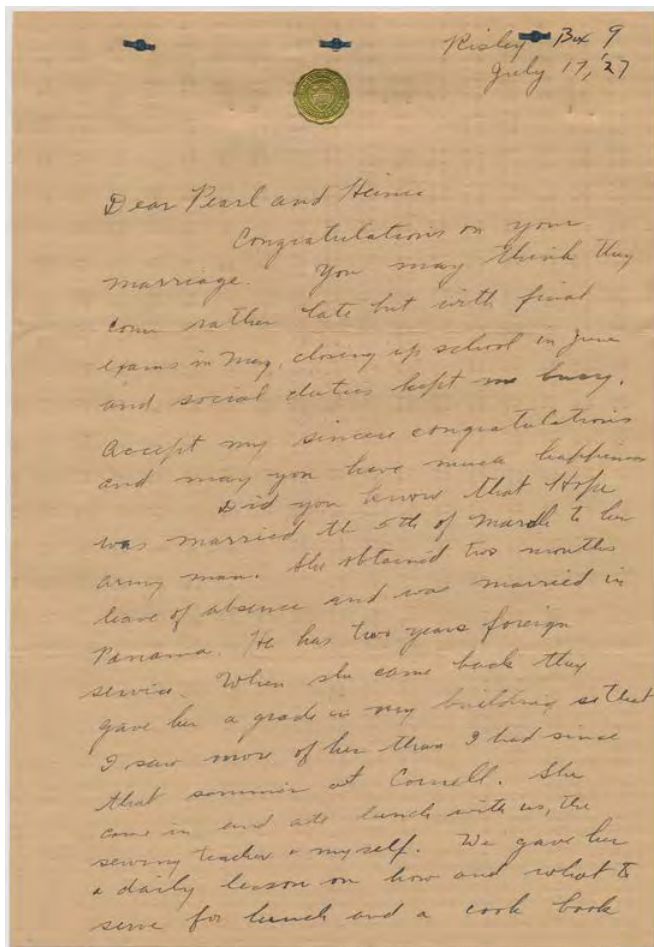 Risley Box 9
July 17, '27
Dear Pearl and Heinie
Congratulations on your
marriage. You may think they
come rather late but with final
exams in May, closing up school in June
and social duties kept me busy.
Accept my sincere congratulations
and may you have much happiness
Did you know that Hope
was married the 5th of March to her
army man. She obtained two months
leave of absence and was married in
Panama. He has two years foreign
service. When she came back they
gave her a grade in my building so that
I saw more of her than I had since
that summer at Cornell. She
came in and ate lunch with us, the
sewing teacher & myself. We gave her
a daily lesson on how and what to
serve for lunch and a cook book